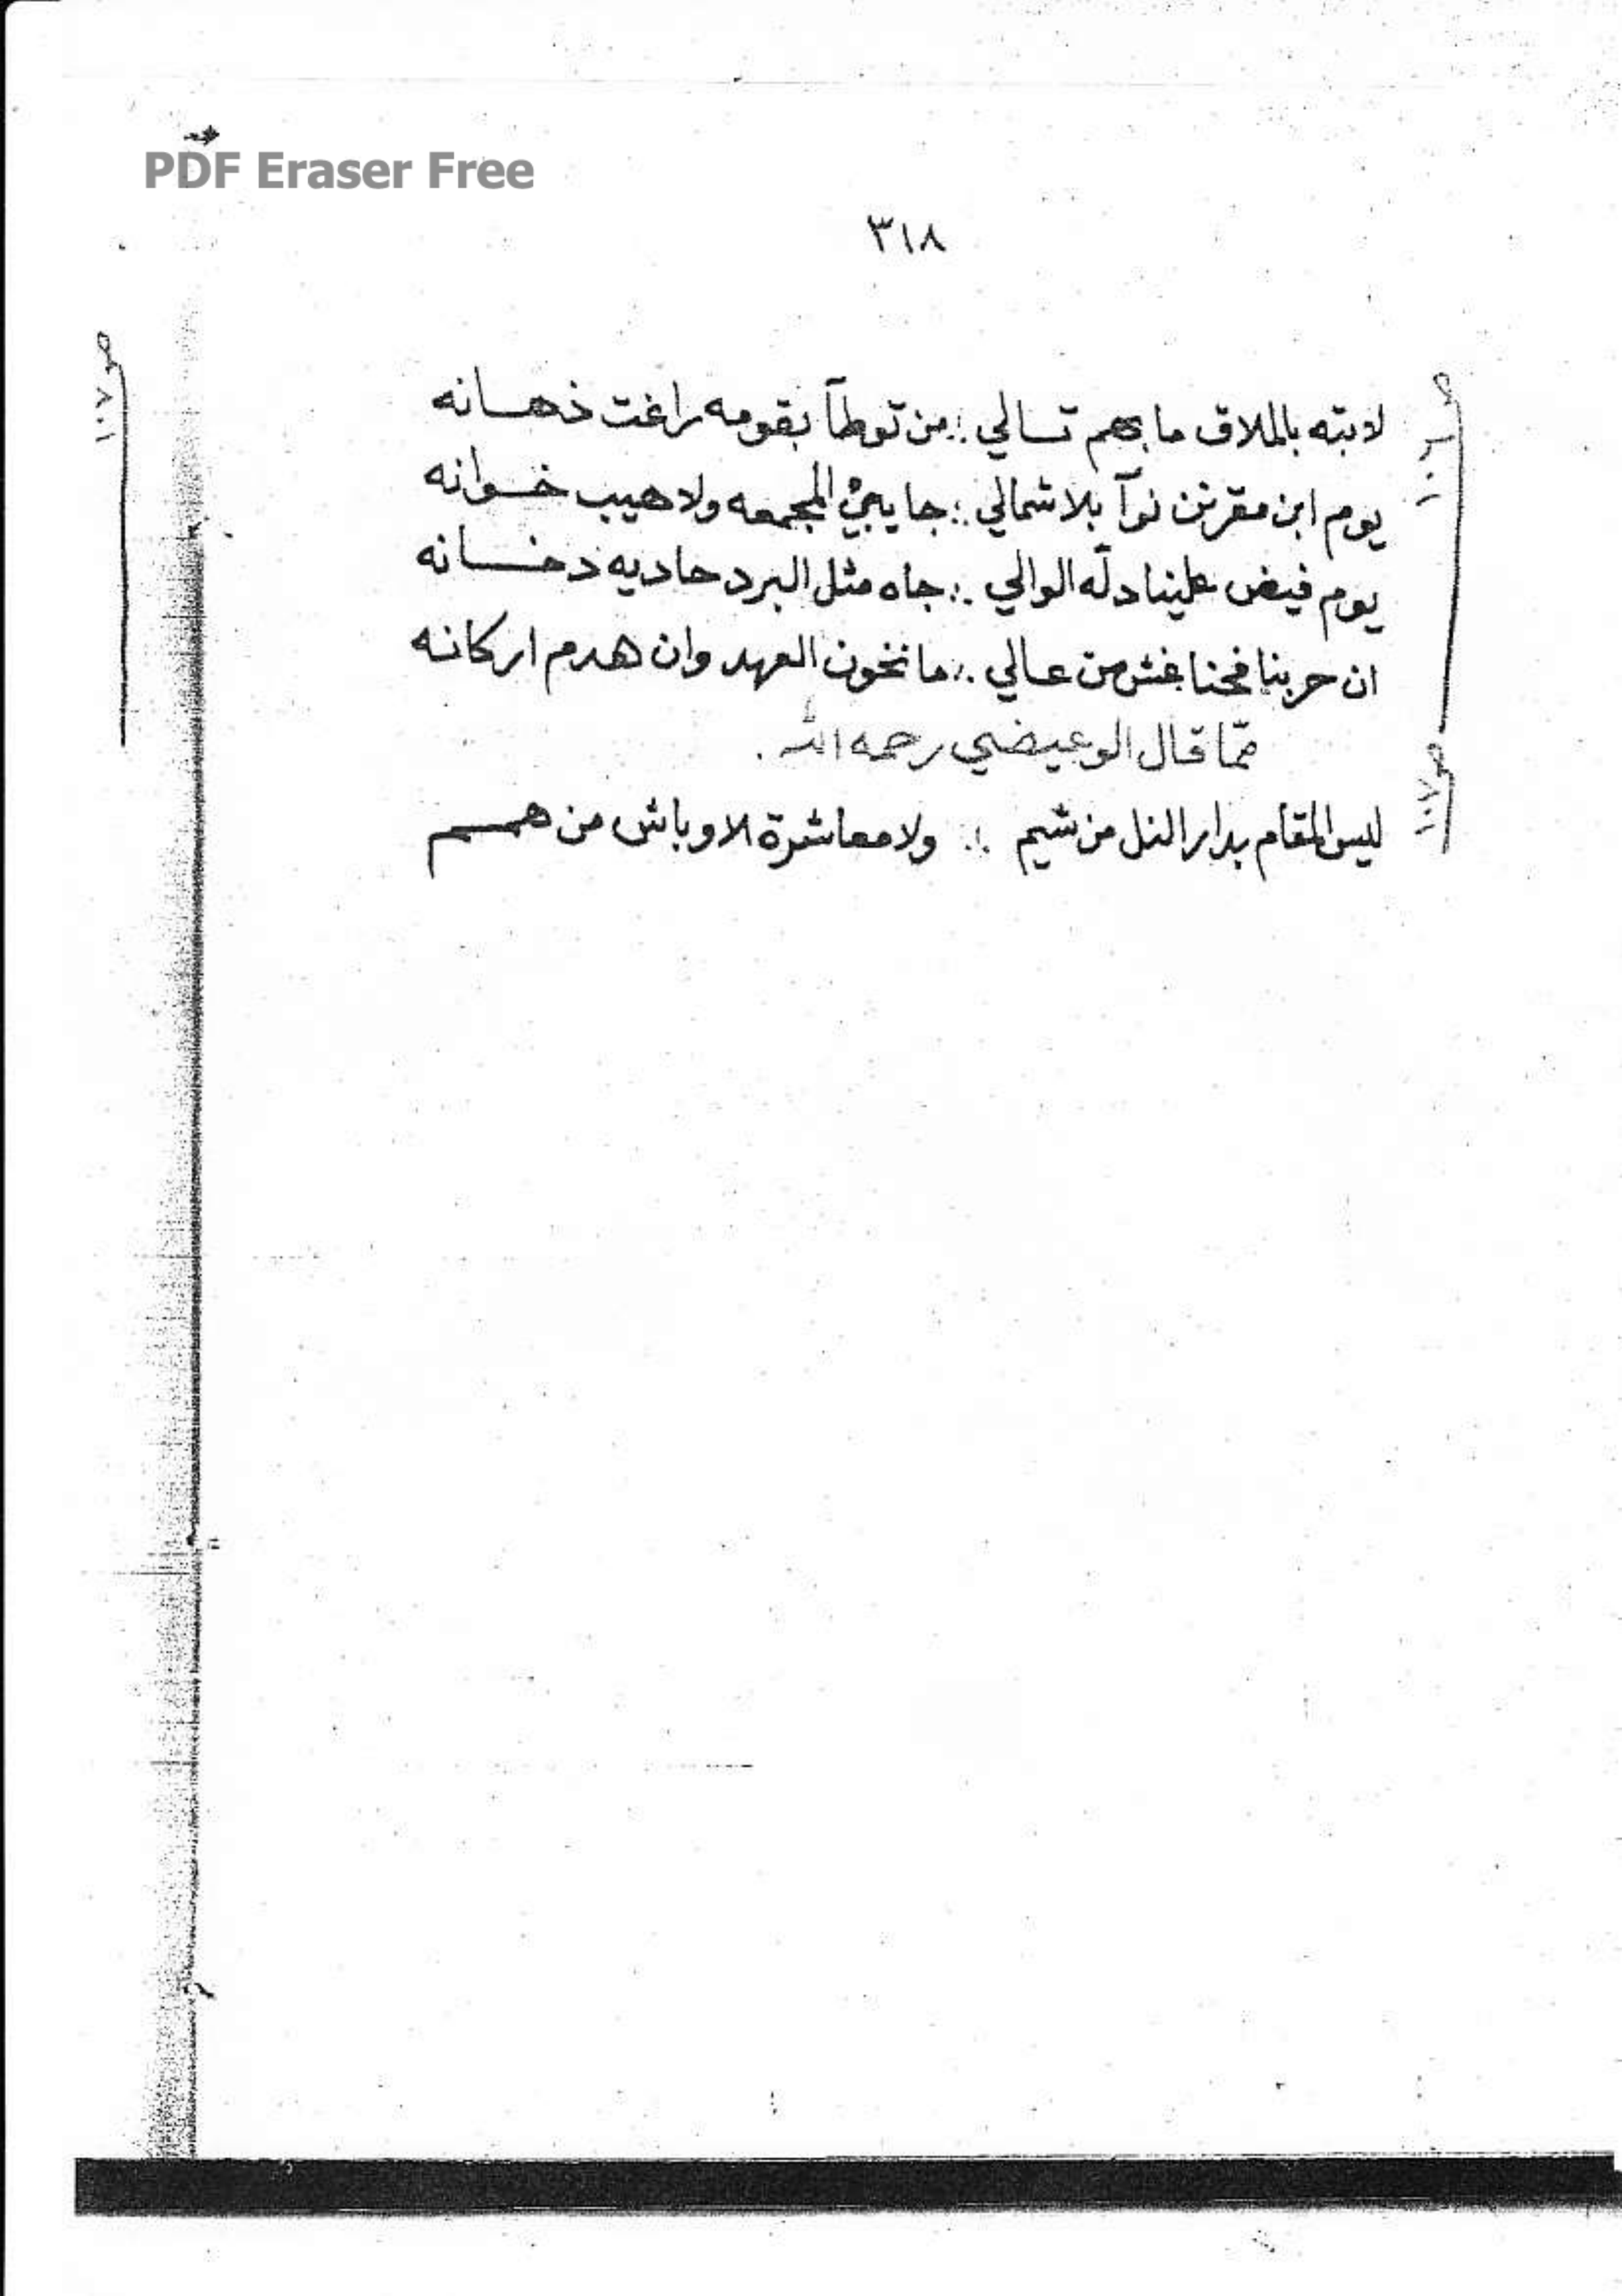 PDF Eraser Free
٣١٨
لابته بالملاق ما بهم تسالي ∴ من توطا بقومه راغت ذهانه
يوم ابن مقرن نوآ بلا شمالي ∴ جا يبي المجمعه ولا هيب خوانه
يوم فيض علينا دلّه الوالي ∴ جاه مثل البرد حاديه دخانه
ان حربنا فحنا غش من عالي ∴ ما نخون العهد وان هدم اركانه
مما قال الوعيضي رحمه الله .
ليس المقام بدار الذل من شيم ∴ ولا معاشرة الاوباش من همم
صـ ١٠٦
صـ ١٠٧
صـ ١٠٧